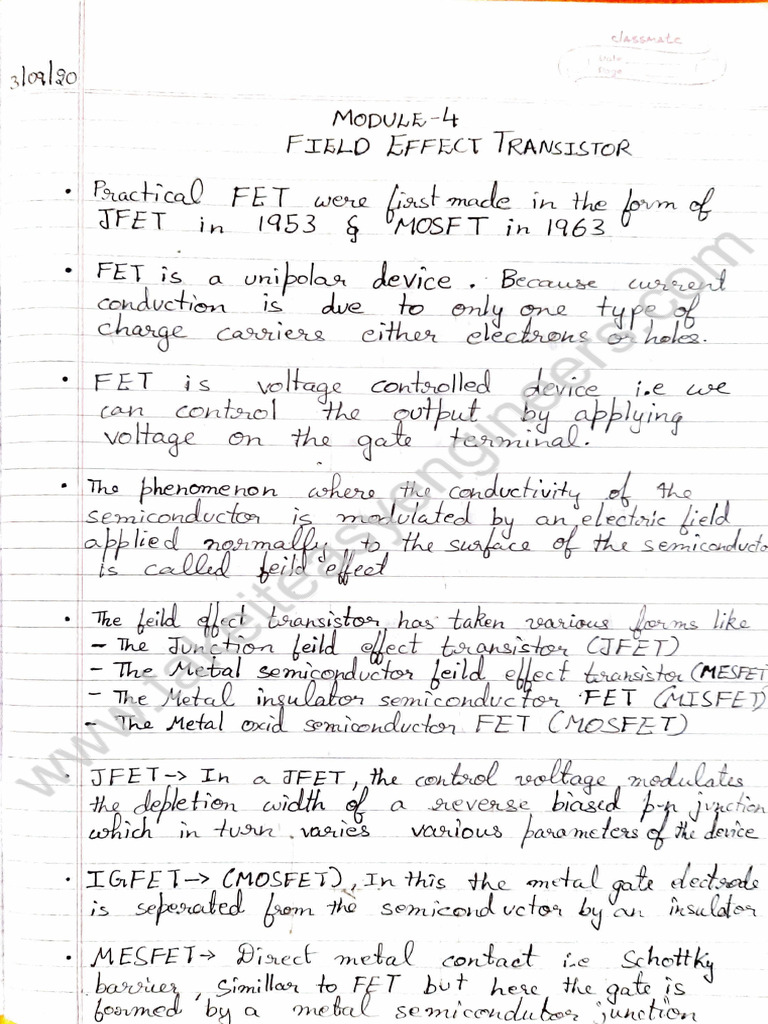 classmate
Date
Page
3/09/20
MODULE-4
FIELD EFFECT TRANSISTOR
• Practical FET were first made in the form of
JFET in 1953 & MOSFT in 1963
• FET is a unipolar device. Because current
conduction is due to only one type of
charge carriers either electrons or holes.
• FET is voltage controlled device i.e we
can control the output by applying
voltage on the gate terminal.
• The phenomenon where the conductivity of the
semiconductor is modulated by an electric field
applied normally to the surface of the semiconducto
is called feild effect
• The feild effect transistor has taken various forms like
- The Junction feild effect transistor (JFET)
- The Metal semiconductor feild effect transistor (MESFET)
- The Metal insulator semiconductor FET (MISFET)
- The Metal oxid semiconductor FET (MOSFET)
• JFET→ In a JFET, the control voltage modulates
the depletion width of a reverse biased p-n junction
which in turn varies various parameters of the device
• IGFET→ (MOSFET), In this the metal gate electrode
is seperated from the semiconductor by an insulator
• MESFET→ Direct metal contact i.e Schottky
barrier, Simillar to FET but here the gate is
formed by a metal semicondutor junction
www.takeiteasyengineers.com